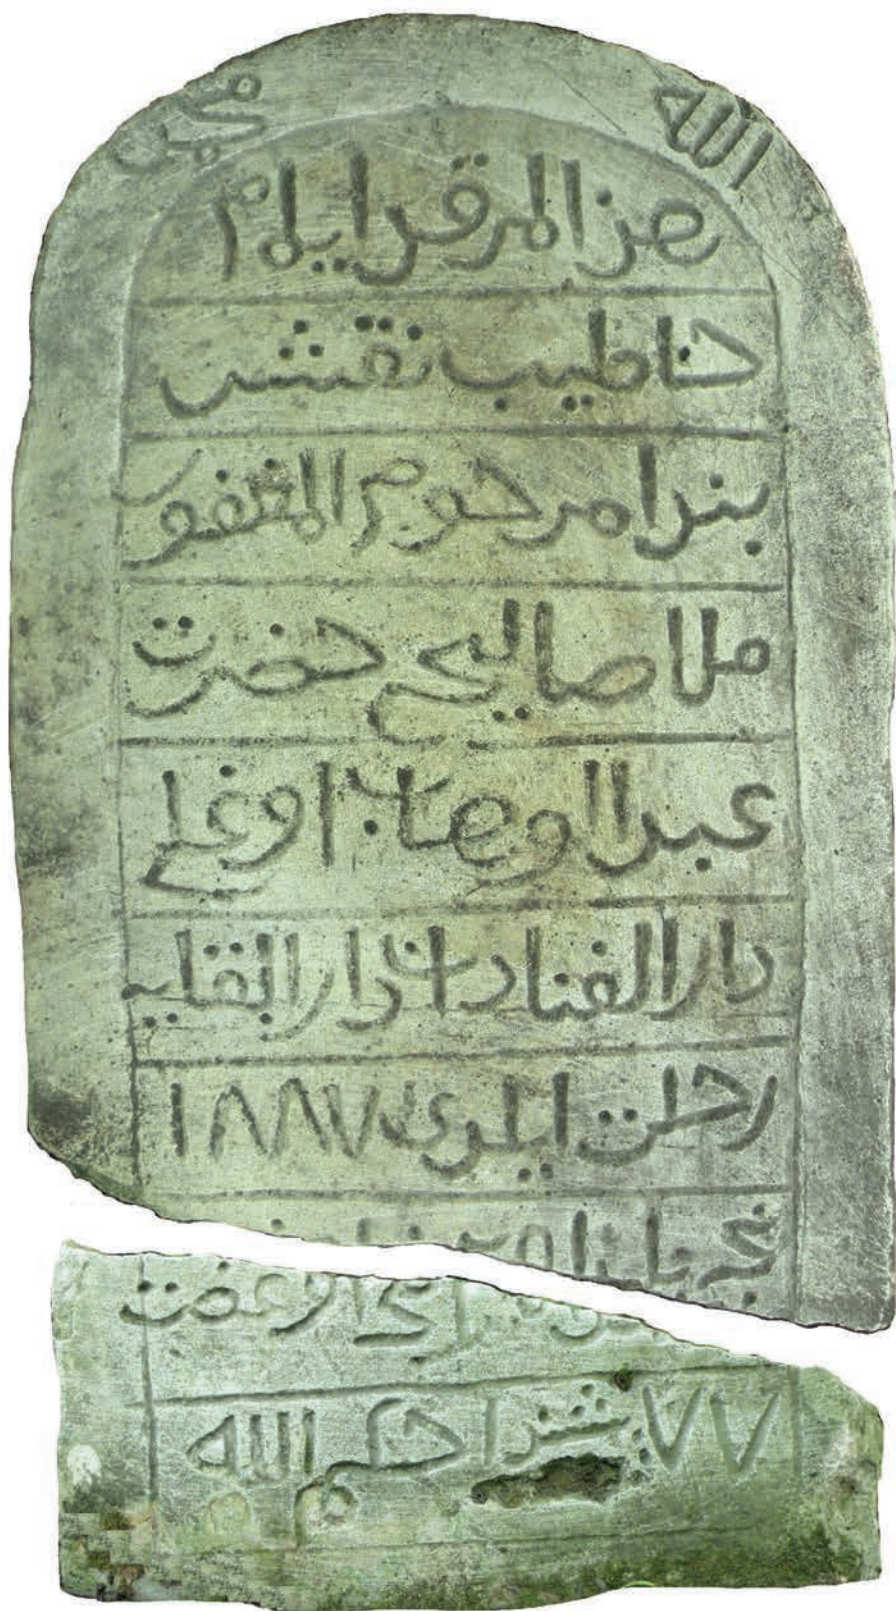 الله محمد
هذا المرقد ايمام
خاطيب نقشى
بند امرحوم المغفور
ملا صاليح حضرت
عبدالوهاب اوغلى
دار الفنادن دار البقايه
رحلت ايلدى ١٨٨٧
٧٧ شندا حكم الله